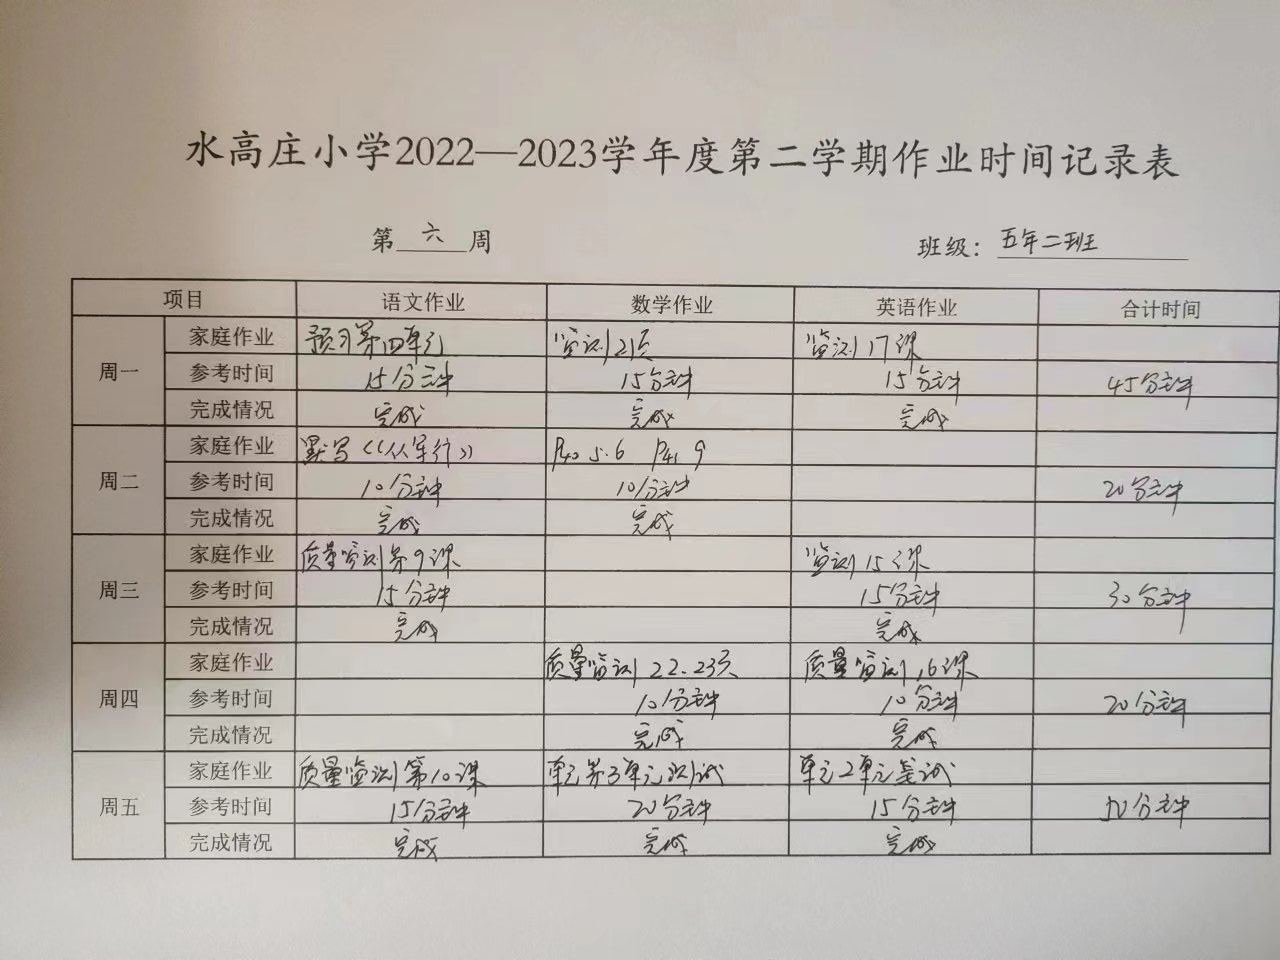 水高庄小学2022—2023学年度第二学期作业时间记录表
第 六 周 班级：五年二班
项目 语文作业 数学作业 英语作业 合计时间
周一
家庭作业 预习第四单元 监测21页 监测17课
参考时间 15分钟 15分钟 15分钟 45分钟
完成情况 完成 完成 完成
周二
家庭作业 默写《从军行》 P40 5.6 P41 9
参考时间 10分钟 10分钟 20分钟
完成情况 完成 完成
周三
家庭作业 质量监测第9课 监测15课
参考时间 15分钟 15分钟 30分钟
完成情况 完成 完成
周四
家庭作业 质量监测22.23页 质量监测16课
参考时间 10分钟 10分钟 20分钟
完成情况 完成 完成
周五
家庭作业 质量监测第10课 单元第3单元测试 单元2单元测试
参考时间 15分钟 20分钟 15分钟 50分钟
完成情况 完成 完成 完成